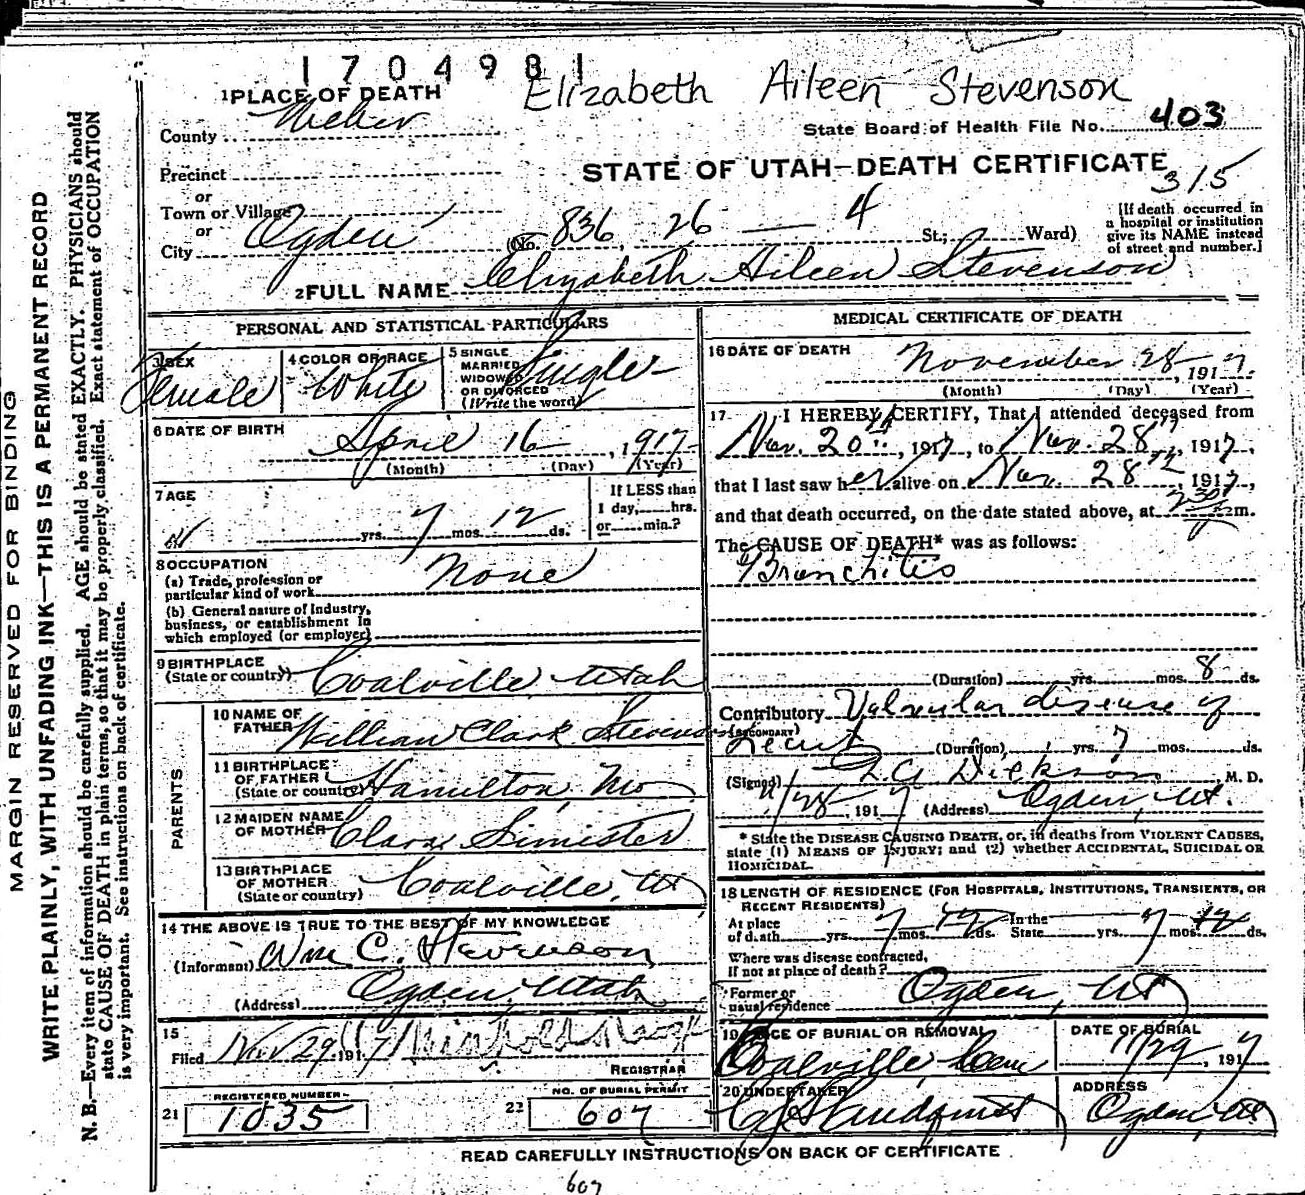 1704981
Elizabeth Aileen Stevenson
1 PLACE OF DEATH
County Weber
State Board of Health File No. 403
STATE OF UTAH—DEATH CERTIFICATE
315
Precinct
or
Town or Village
or
City Ogden (No. 836, 26 — 4 St.; Ward)
[If death occurred in
a hospital or institution
give its NAME instead
of street and number.]
2 FULL NAME Elizabeth Aileen Stevenson
PERSONAL AND STATISTICAL PARTICULARS
3 SEX
Female
4 COLOR OR RACE
White
5 SINGLE
MARRIED
WIDOWED
OR DIVORCED
(Write the word)
Single
6 DATE OF BIRTH
April 16, 1917
(Month) (Day) (Year)
7 AGE
yrs. 7 mos. 12 ds.
If LESS than
1 day, hrs.
or min.?
8 OCCUPATION
(a) Trade, profession or
particular kind of work None
(b) General nature of Industry,
business, or establishment in
which employed (or employer)
9 BIRTHPLACE
(State or country) Coalville Utah
PARENTS
10 NAME OF
FATHER William Clark Stevenson
11 BIRTHPLACE
OF FATHER
(State or country) Hamilton, Mo
12 MAIDEN NAME
OF MOTHER Clara Simister
13 BIRTHPLACE
OF MOTHER
(State or country) Coalville, Ut
14 THE ABOVE IS TRUE TO THE BEST OF MY KNOWLEDGE
(Informant) Wm C. Stevenson
(Address) Ogden, Utah
15
Filed Nov 29 1917
REGISTRAR
REGISTERED NUMBER
21 1035
NO. OF BURIAL PERMIT
22 607
MEDICAL CERTIFICATE OF DEATH
16 DATE OF DEATH
November 28, 1917.
(Month) (Day) (Year)
17. I HEREBY CERTIFY, That I attended deceased from
Nov. 20th, 1917, to Nov. 28th, 1917,
that I last saw her alive on Nov. 28th, 1917,
and that death occurred, on the date stated above, at 230 m.
The CAUSE OF DEATH* was as follows:
Bronchitis
(Duration) yrs. mos. 8 ds.
Contributory Valvular disease of
(SECONDARY)
heart (Duration) yrs. 7 mos. ds.
(Signed) Dickson, M. D.
11/28, 1917 (Address) Ogden, Ut.
* State the DISEASE CAUSING DEATH, or, in deaths from VIOLENT CAUSES,
state (1) MEANS OF INJURY; and (2) whether ACCIDENTAL, SUICIDAL OR
HOMICIDAL.
18 LENGTH OF RESIDENCE (FOR HOSPITALS, INSTITUTIONS, TRANSIENTS, OR
RECENT RESIDENTS)
At place
of death yrs. 7 mos. 12 ds. In the
State yrs. 7 mos. 12 ds.
Where was disease contracted,
If not at place of death?
Former or
usual residence Ogden, Ut
19 PLACE OF BURIAL OR REMOVAL
Coalville, Cem
DATE OF BURIAL
11/29, 1917
20 UNDERTAKER
ADDRESS
Ogden Ut
READ CAREFULLY INSTRUCTIONS ON BACK OF CERTIFICATE
607
MARGIN RESERVED FOR BINDING
WRITE PLAINLY, WITH UNFADING INK—THIS IS A PERMANENT RECORD
N. B.—Every item of information should be carefully supplied. AGE should be stated EXACTLY. PHYSICIANS should
state CAUSE OF DEATH in plain terms, so that it may be properly classified. Exact statement of OCCUPATION
is very important. See instructions on back of certificate.